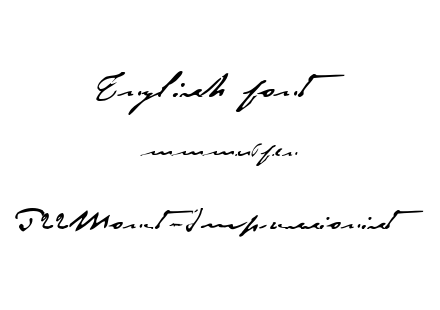 English font
P22Monet-Impressionist